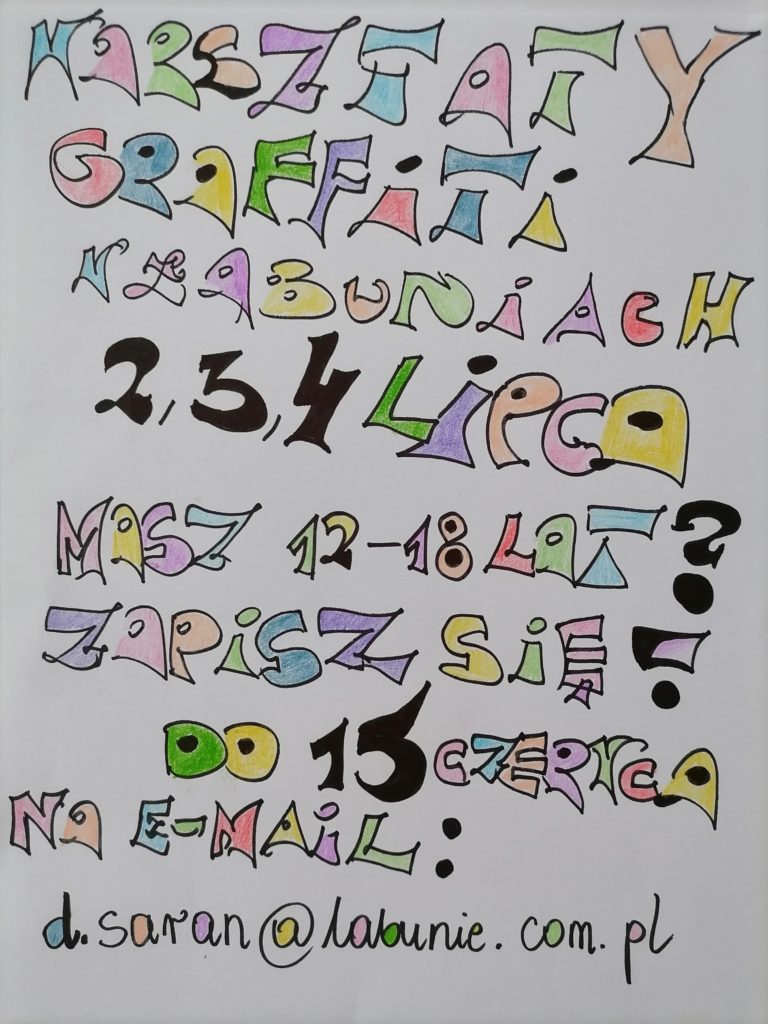 WARSZTATY
GRAFFITI
W ŁABUNIACH
2,3,4 LIPCA
MASZ 12-18 LAT?
ZAPISZ SIĘ!
DO 15 CZERWCA
NA E-MAIL:
d.saran@labunie.com.pl